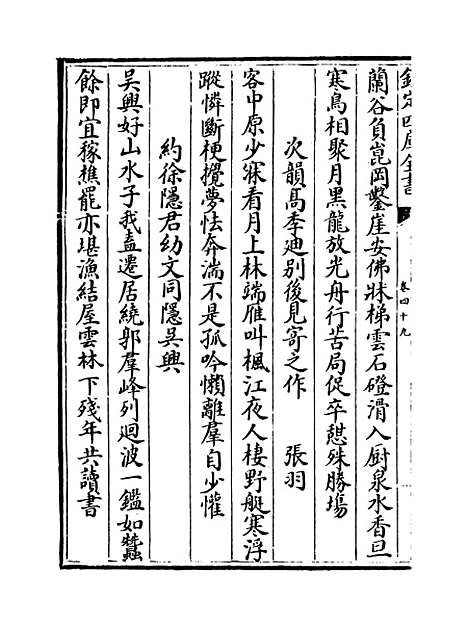 欽定四庫全書
卷四十九
蘭谷負崑岡鑿崖安佛牀梯雲石磴滑入厨泉水香旦
寒鳥相聚月黑龍放光舟行苦局促卒憇殊勝塲
次韻高季迪別後見寄之作 張羽
客中原少寐看月上林端雁叫楓江夜人棲野艇寒浮
蹤憐斷梗攪夢怯奔湍不是孤吟懶離羣自少懽
約徐隱君幼文同隱吳興
吳興好山水子我盍遷居繞郭羣峰列迴波一鑑如蠶
餘即宜稼樵罷亦堪漁結屋雲林下殘年共讀書